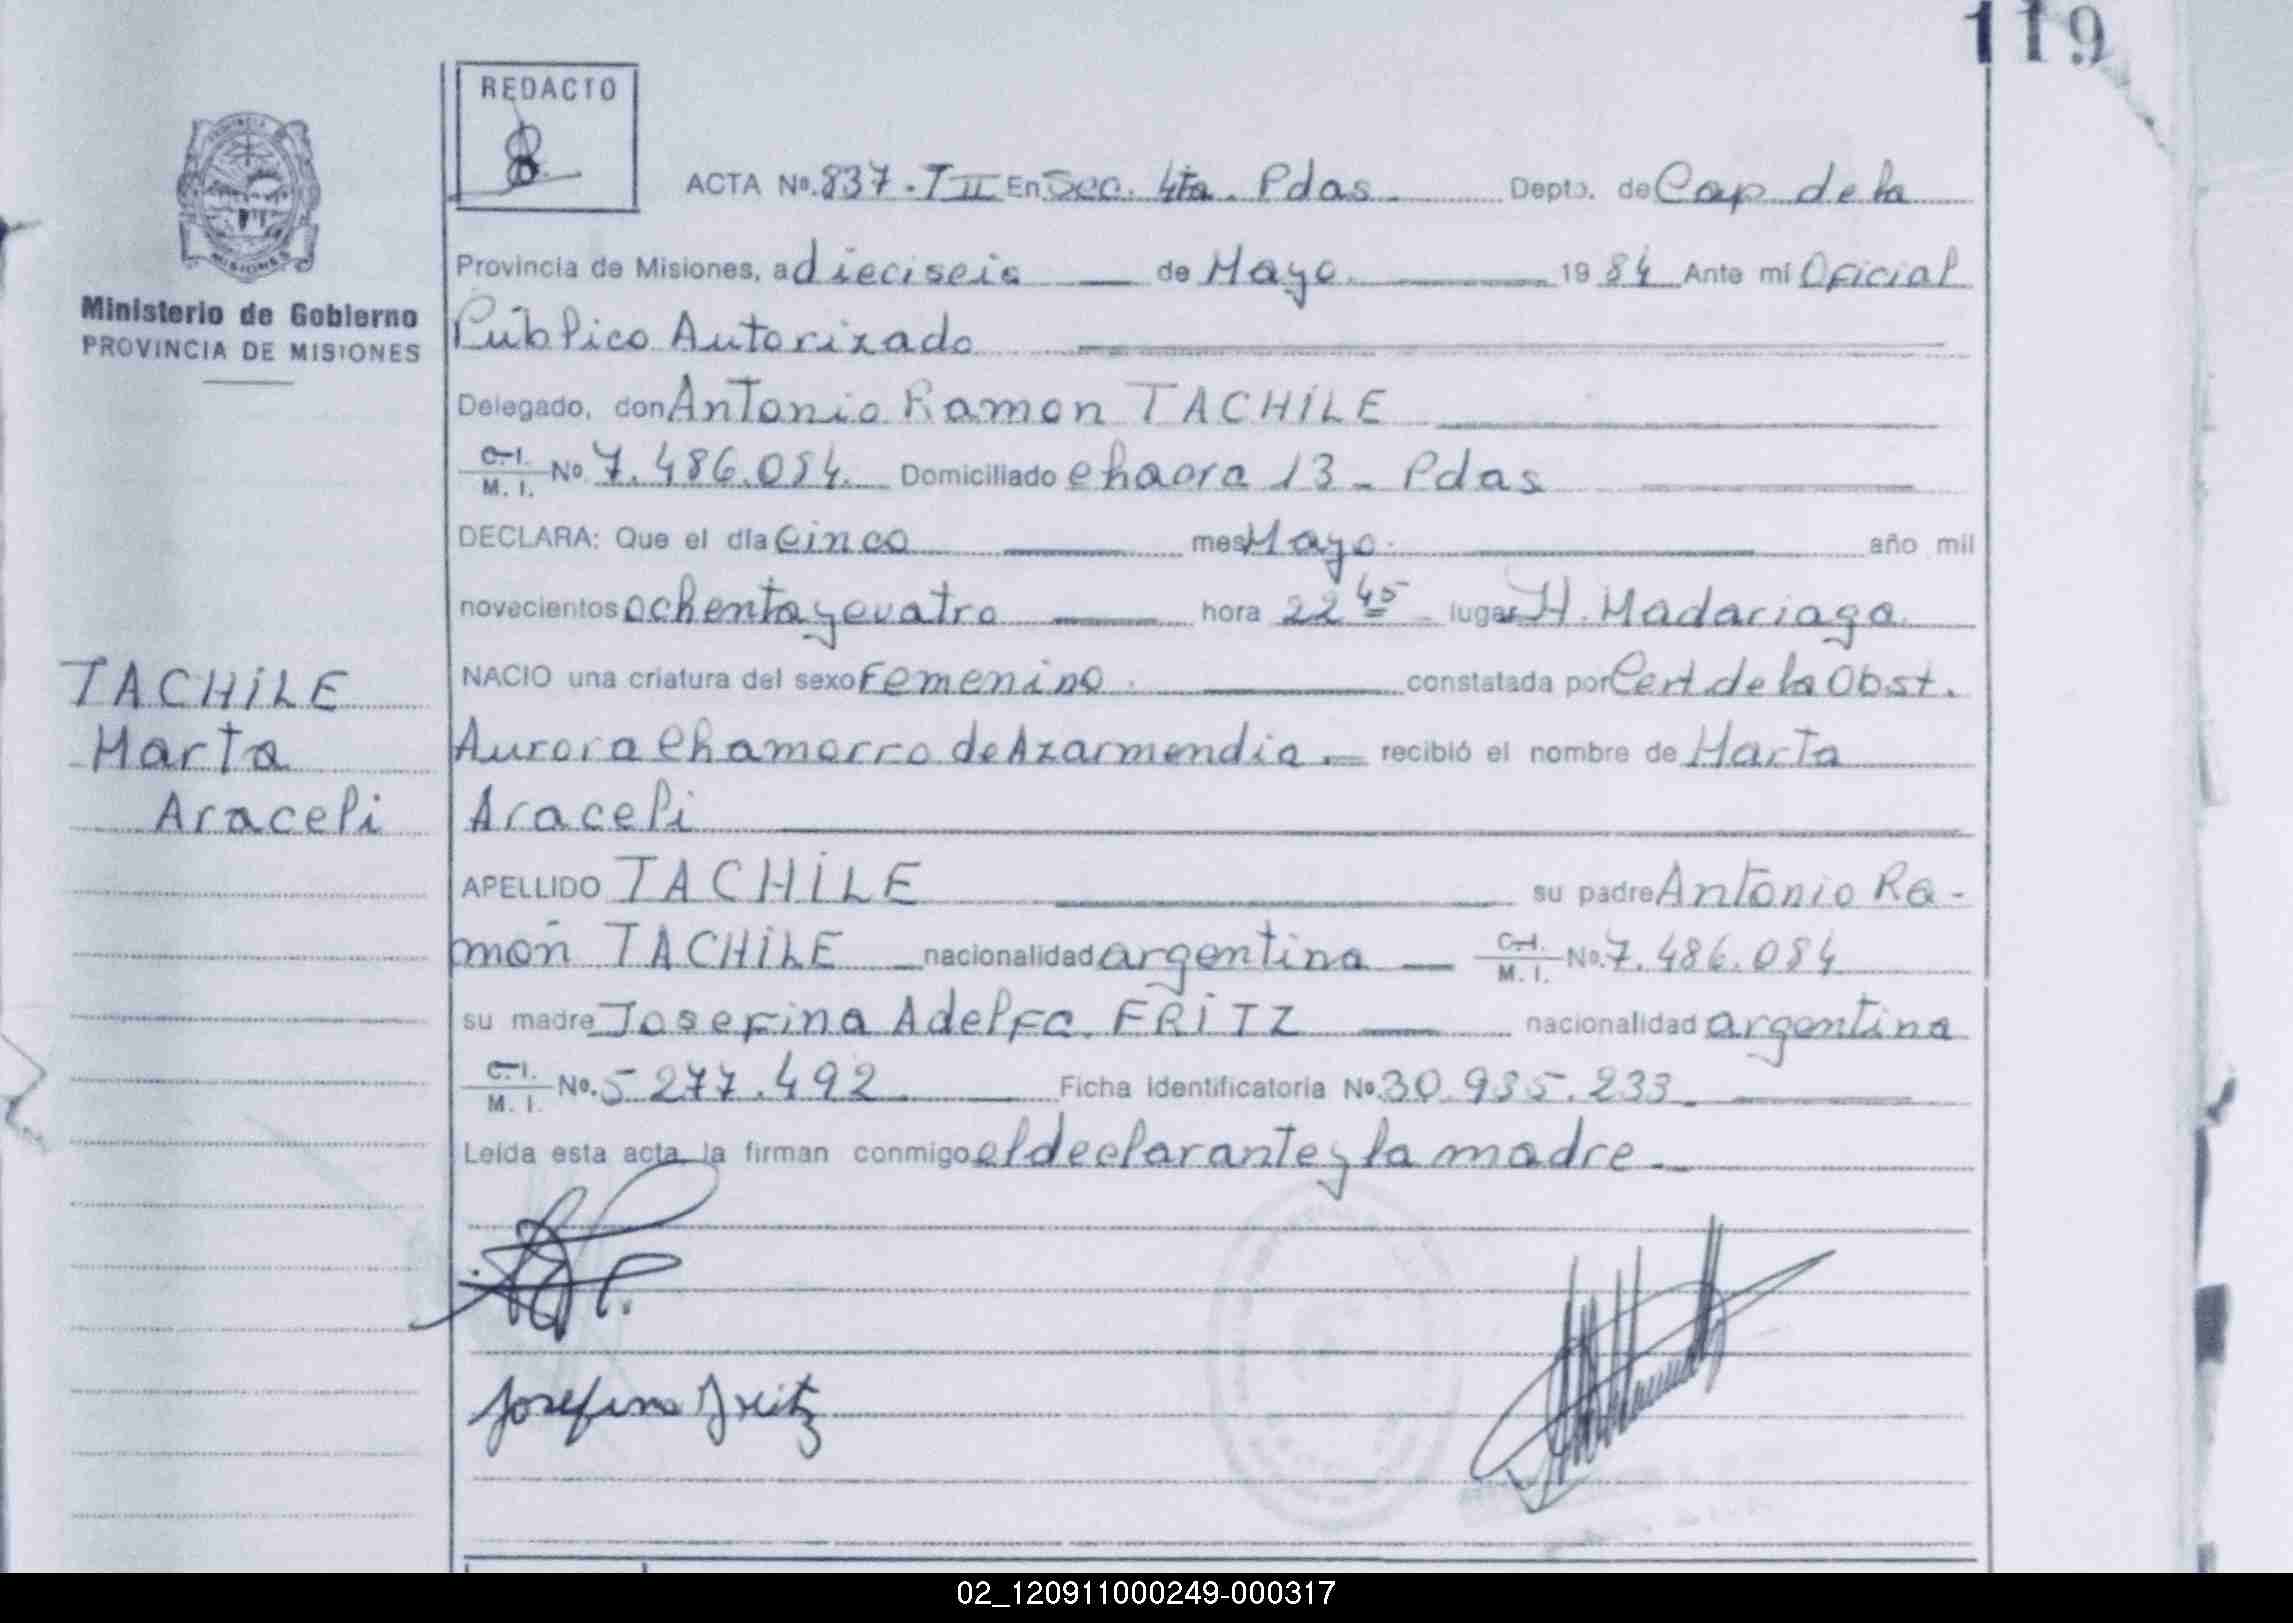 119
REDACTO
ACTA No. 837. T II En Sec. 4ta. Pdas. Depto. de Cap de la
PROVINCIA
MISIONES
Provincia de Misiones, a dieciseis de Mayo. 19 84 Ante mí Oficial
Ministerio de Gobierno
PROVINCIA DE MISIONES
Público Autorizado
Delegado, don Antonio Ramon TACHiLE
C.I. M.I. No 7.486.084. Domiciliado chacra 13 - Pdas
DECLARA: Que el día cinco mes Mayo. año mil
novecientos ochenta y cuatro hora 22 45 lugar H. Madariaga.
NACIO una criatura del sexo Femenino. constatada por Cert. de la Obst.
TACHiLE
Marta
Araceli
Aurora Chamorro de Azarmendia. recibió el nombre de Marta
Araceli
APELLIDO TACHiLE su padre Antonio Ra-
mon TACHiLE nacionalidad argentina C.I. M.I. No. 7.486.084
su madre Josefina Adelfa FRiTZ nacionalidad argentina
C.I. M.I. No. 5.277.492. Ficha Identificatoria No. 30.935.233.
Leída esta acta la firman conmigo el declarante y la madre.
Josefina Fritz
02_120911000249-000317